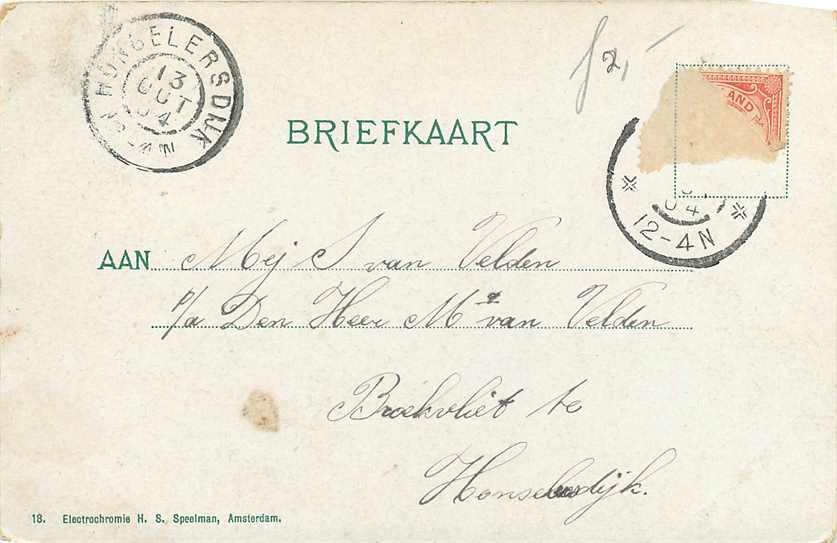 HONSELERSDIJK
13
OCT
04
3-4N
f 2,-
AND
04
12-4N
BRIEFKAART
AAN Mej S van Velden
p/a Den Heer M. van Velden
Broekvliet te
Honselersdijk.
18. Electrochromie H. S. Speelman, Amsterdam.